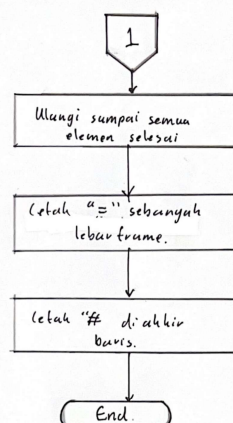 1
Ulangi sampai semua
elemen selesai
Cetak "=" sebanyak
lebar frame.
Cetak "# di akhir
baris.
End.